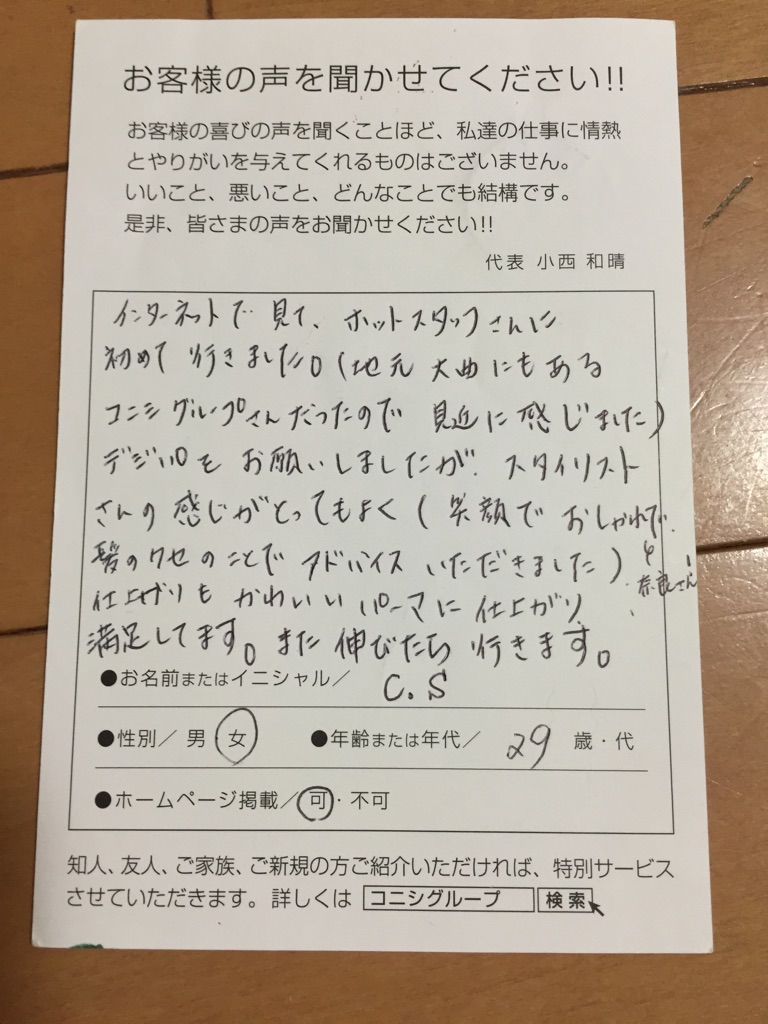 お客様の声を聞かせてください!!
お客様の喜びの声を聞くことほど、私達の仕事に情熱
とやりがいを与えてくれるものはございません。
いいこと、悪いこと、どんなことでも結構です。
是非、皆さまの声をお聞かせください!!
代表 小西 和晴
インターネットで見て、ホットスタッフさんに
初めて行きました。(地元大曲にもある
コニシグループさんだったので見近に感じました)
デジパをお願いしましたが、スタイリスト
さんの感じがとってもよく(笑顔でおしゃれで、
髪のクセのことでアドバイスいただきました)
奈良さん
仕上がりもかわいいパーマに仕上がり、
満足してます。また伸びたら行きます。
●お名前またはイニシャル/ C.S
●性別/ 男・女 ●年齢または年代/ 29 歳・代
●ホームページ掲載/可・不可
知人、友人、ご家族、ご新規の方ご紹介いただければ、特別サービス
させていただきます。詳しくは コニシグループ 検索